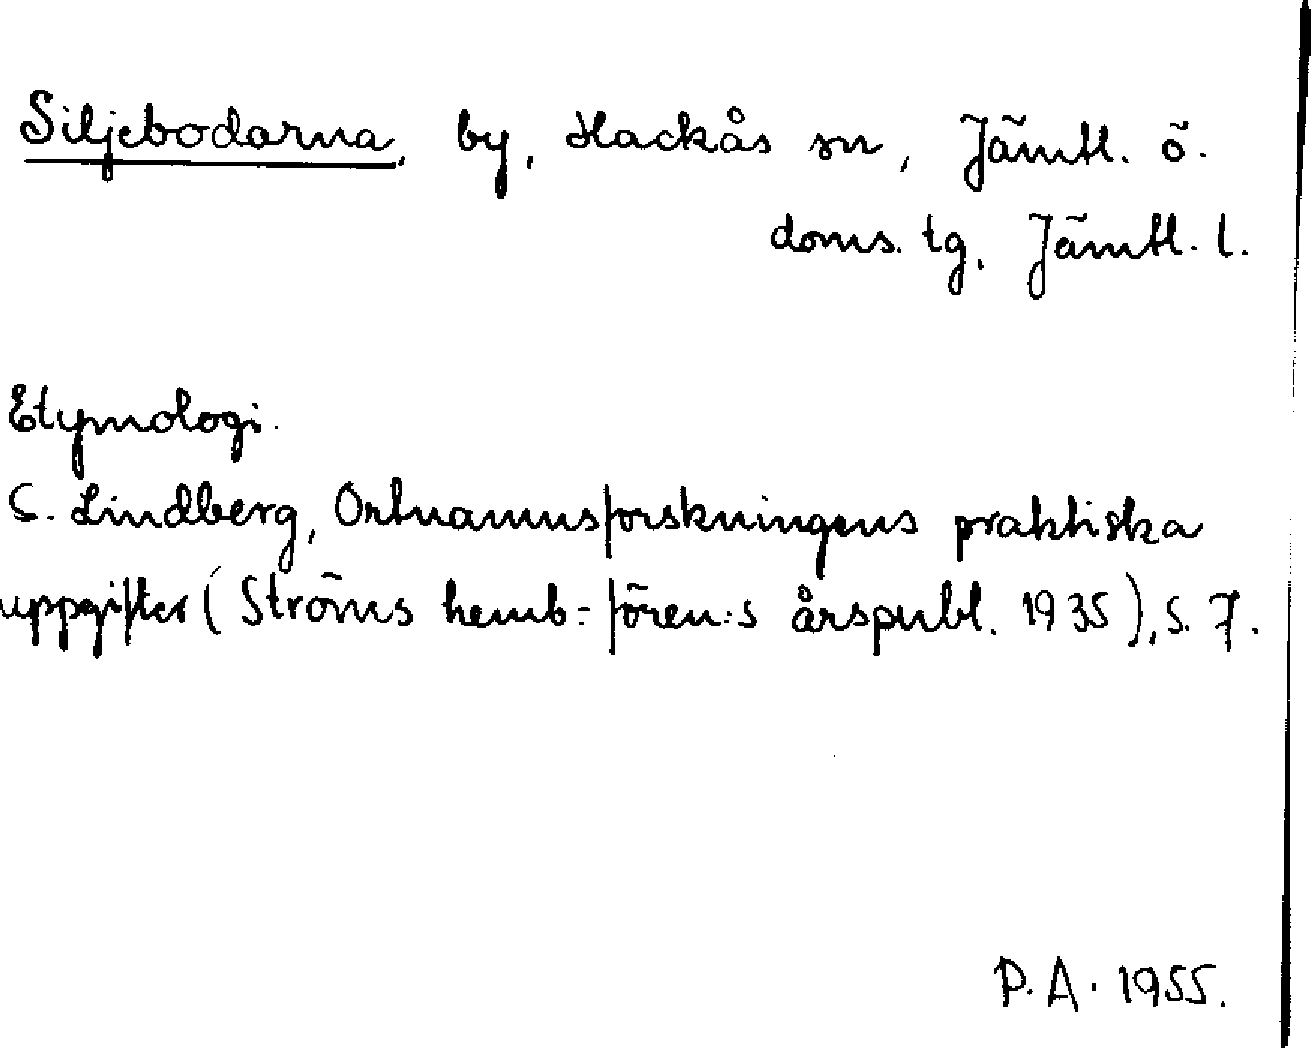 Siljebodarna, by, Hackås sn, Jämtl. ö.
doms. tg, Jämtl. l.
Etymologi.
C. Lindberg, Ortnamnsforskningens praktiska
uppgifter (Ströms hemb:fören:s årspubl. 1935), s. 7.
P. A. 1955.